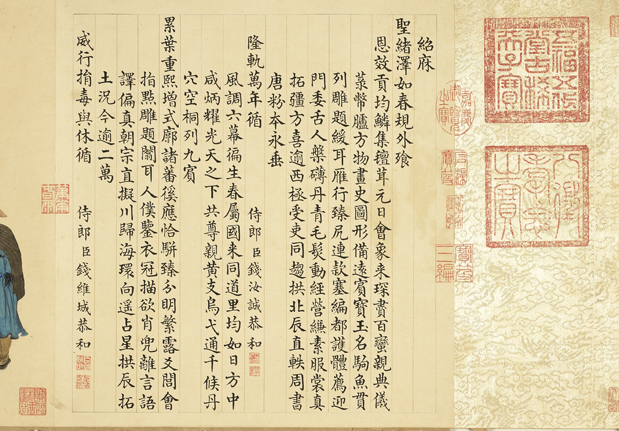 五福五代
堂古稀
天子寶
八徵
耄念
之寶
寶笈
三編
紹庥
聖緒澤如春規外飱
恩效貢均鱗集獯茸元日會象来琛賮百蠻親典儀
菉幣臚方物畫史圖形備遠賓寶玉名駒魚貫
列雕題緩耳雁行臻尻連款塞編都護體薦迎
門委古人槃礴丹青毛髪動經營縑素服裳真
拓疆方喜逾西極受吏同趨拱北辰直軼周書
唐粉本永垂
隆軌萬年循 侍郎臣錢汝誠恭和
風調六幕徧生春屬國来同道里均如日方中
咸炳耀光天之下共尊親黄支烏弋通千候丹
穴空桐列九賓
累葉重熙增式廓諸蕃徯應恰駢臻分明繁露爻閭會
指㸃雕題闟耳人僕鑒衣冠描欲肖兜離言語
譯偏真朝宗直擬川歸海環向遥占星拱辰拓
土況今逾二萬
威行揹毒與休循 侍郎臣錢維城恭和